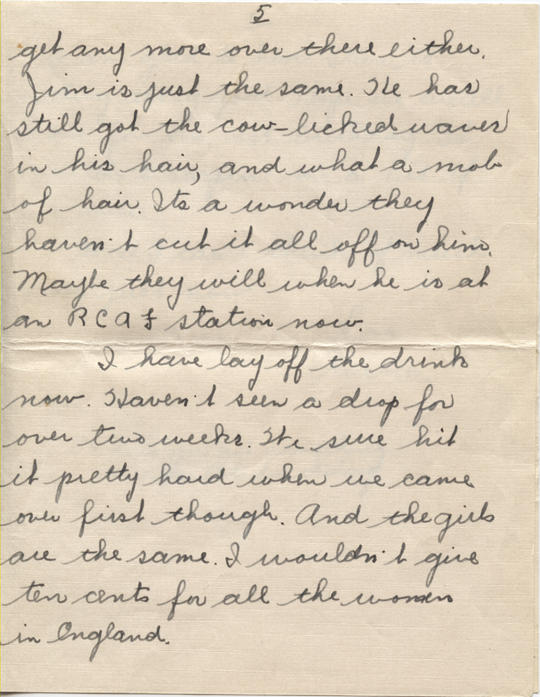 5
get any more over there either.
Jim is just the same. He has
still got the cow-licked waves
in his hair, and what a mob
of hair. Its a wonder they
haven't cut it all off on him.
Maybe they will when he is at
an RCAF station now.
I have lay off the drink
now. Haven't seen a drop for
over two weeks. We sure hit
it pretty hard when we came
over first though. And the girls
are the same. I wouldn't give
ten cents for all the women
in England.